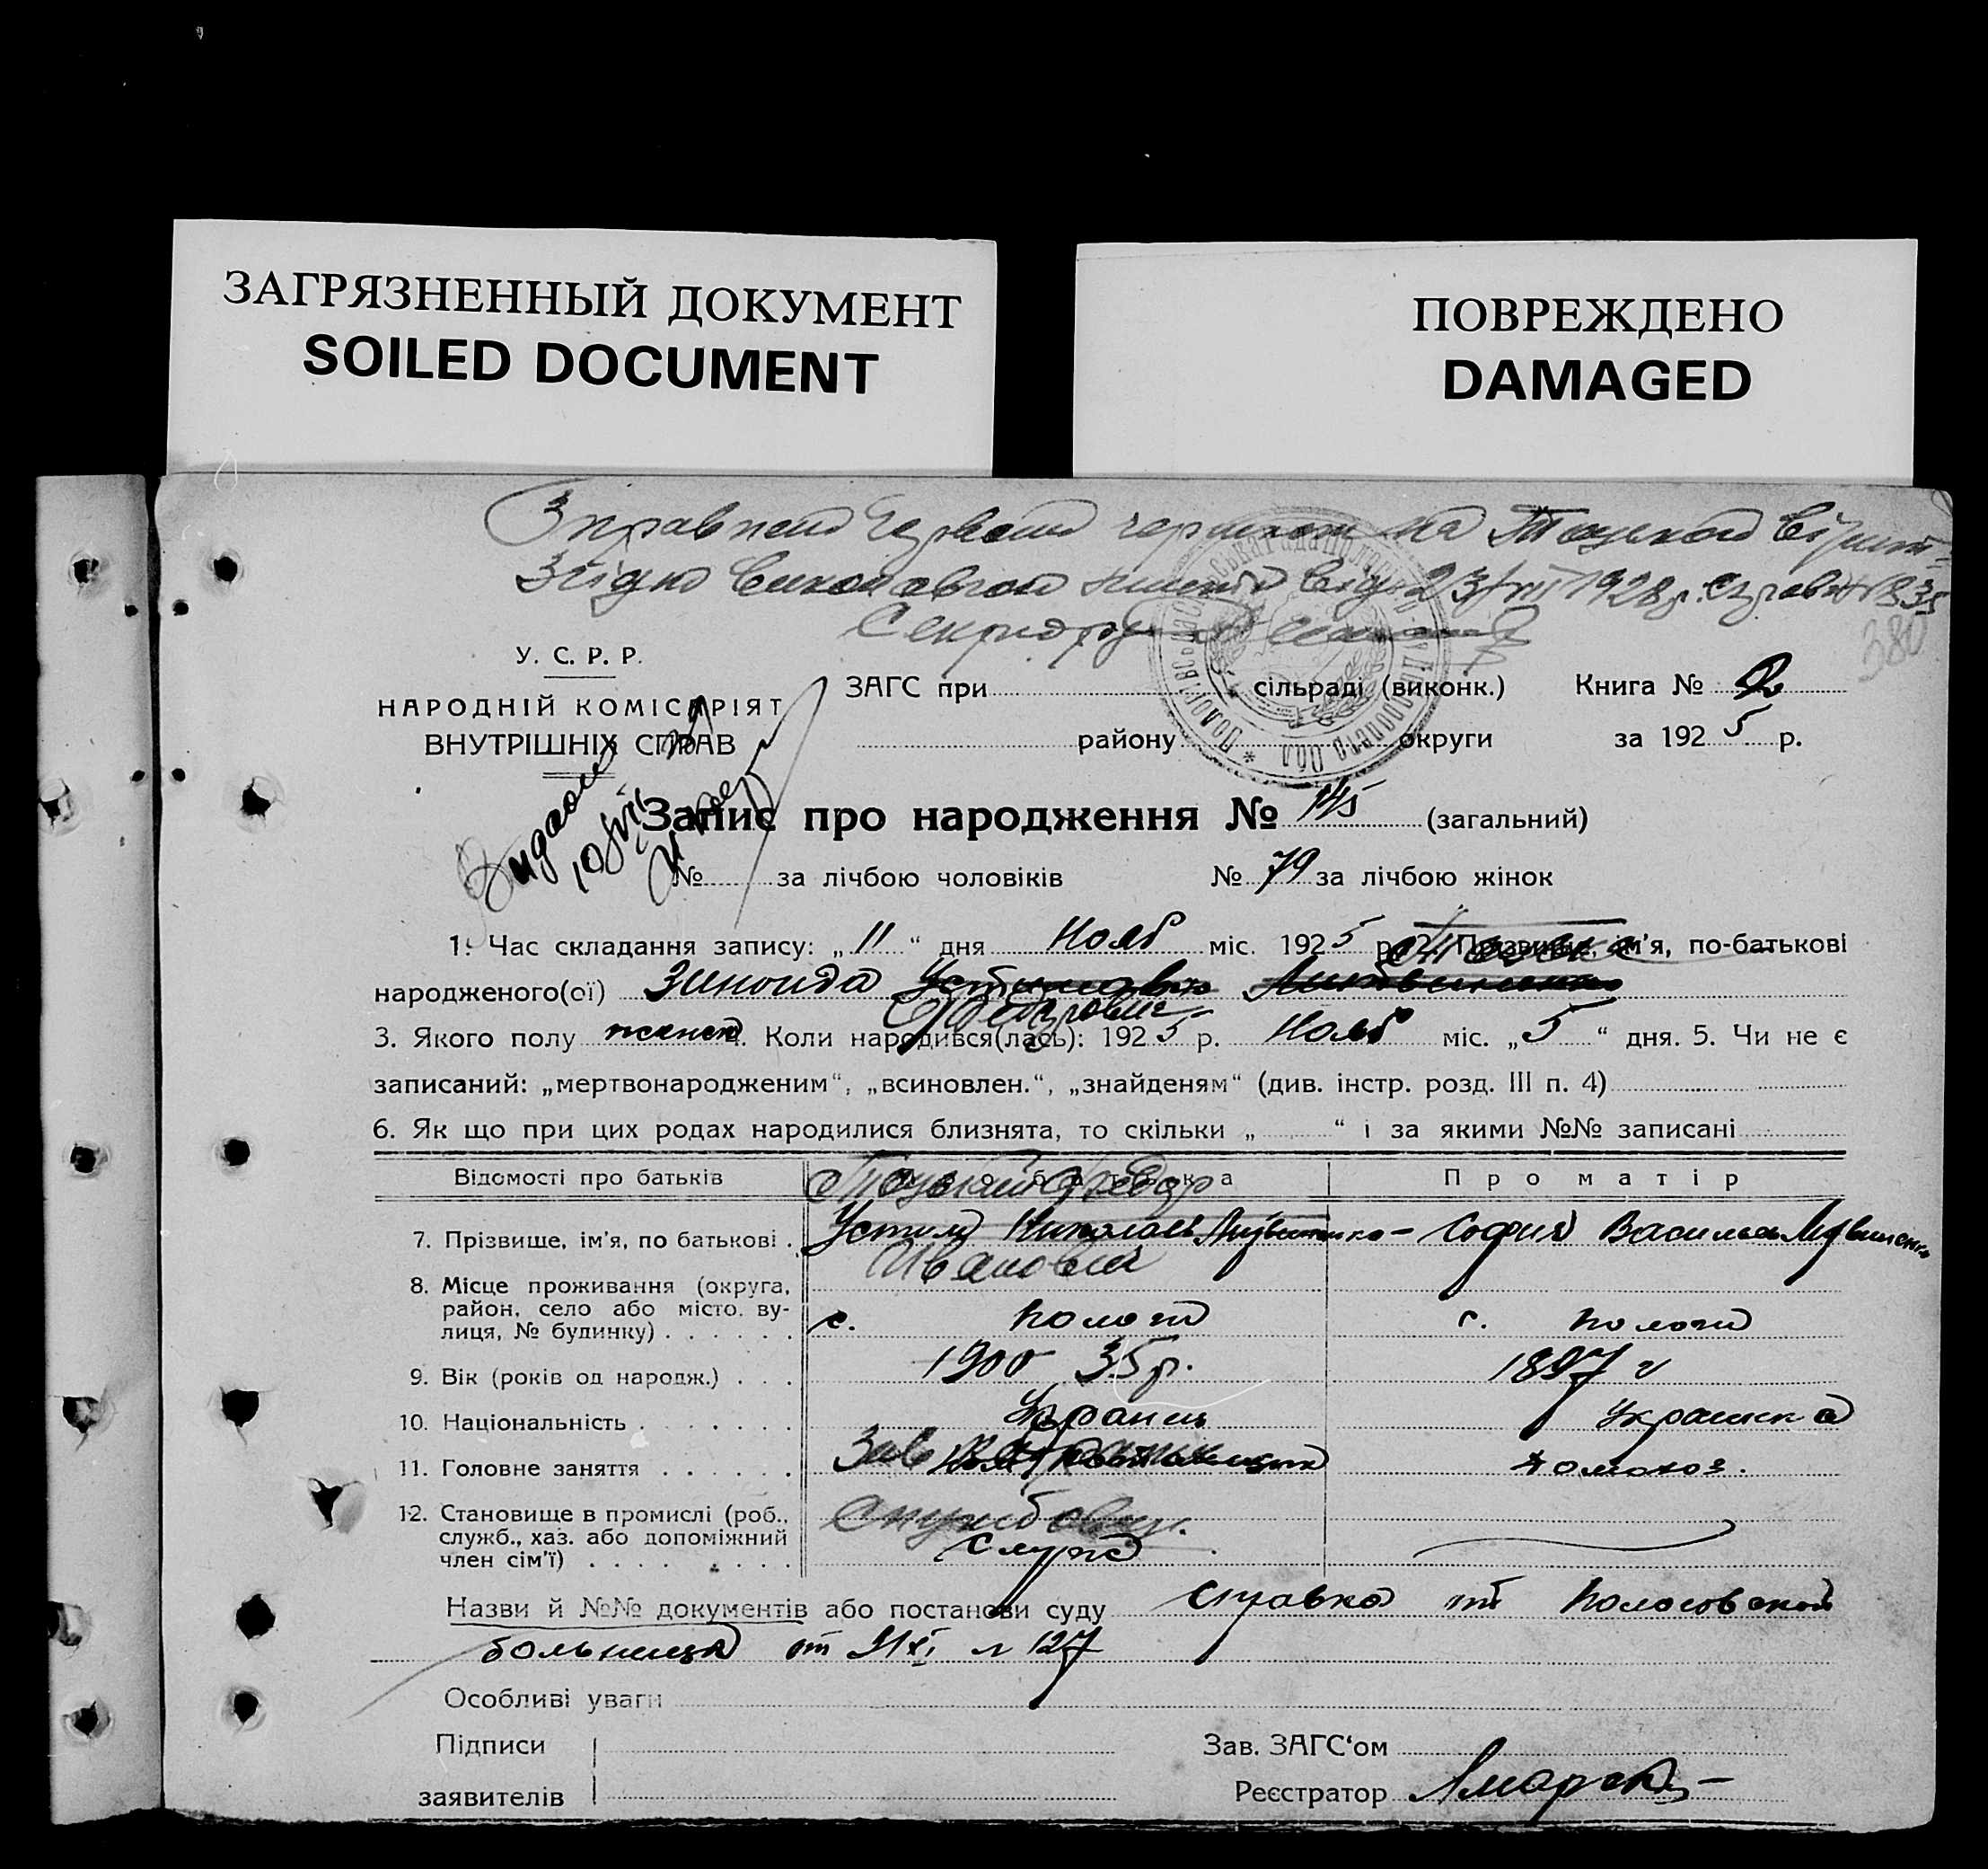 ЗАГРЯЗНЕННЫЙ ДОКУМЕНТ
SOILED DOCUMENT
ПОВРЕЖДЕНО
DAMAGED
від 23/VII 1928 р.
380
У. С. Р. Р.
НАРОДНІЙ КОМІСАРІЯТ
ВНУТРІШНІХ СПРАВ
ЗАГС при сільраді (виконк.) Книга № 2
району округи за 1925 р.
Видано
Запис про народження № 145 (загальний)
№ за лічбою чоловіків № 79 за лічбою жінок
1. Час складання запису: „11“ дня Нояб міс. 1925 р. 2. Прізвище, ім'я, по-батькові
народженого(ої) Зиноида Устиновна Литвиненко
Федоровна
3. Якого полу женск 4. Коли народився(лась): 1925 р. Нояб міс. „5“ дня. 5. Чи не є
записаний: „мертвонародженим“, „всиновлен.“, „знайденям“ (див. інстр. розд. III п. 4)
6. Як що при цих родах народилися близнята, то скільки „ “ і за якими №№ записані
Відомості про батьків Про батька Про матір
Федор
7. Прізвище, ім'я, по батькові . Устин Николаев Литвиненко – София Васильев Литвиненко
Иванович
8. Місце проживання (округа, район, село або місто, вулиця, № будинку) . . . . . . с. Пологи с. Пологи
9. Вік (років од народж.) . . . 1900 35 р. 1897 г
10. Національність . . . . . . . Украинец Украинка
11. Головне заняття . . . . . . Зав домохоз.
12. Становище в промислі (роб., служб., хаз. або допоміжний член сім'ї) . . . . . . . . . Службовец.
Служ
Назви й №№ документів або постанови суду справка от Пологовской
больницы от 9/XI № 127
Особливі уваги
Підписи
заявителів
Зав. ЗАГС'ом
Реєстратор